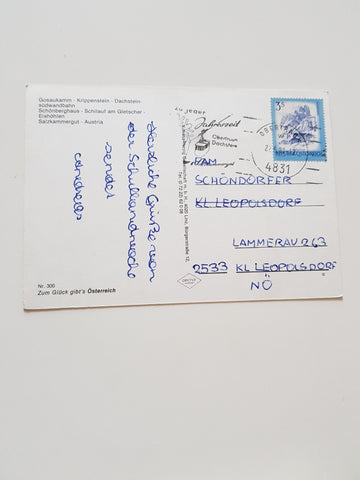 Gosaukamm - Krippenstein - Dachstein-
südwandbahn
Schönberghaus - Schilauf am Gletscher -
Eishöhlen
Salzkammergut - Austria
Herzliche Grüße von
der Schullandwoche
sendet
Nr. 300
Zum Glück gibt's Österreich
zu jeder
Jahreszeit
Obertraun
Dachstein
4831
3 S
FAM
SCHÖNDORFER
KL LEOPOLSDORF
LAMMERAU 263
2533 KL LEOPOLSDORF
NÖ